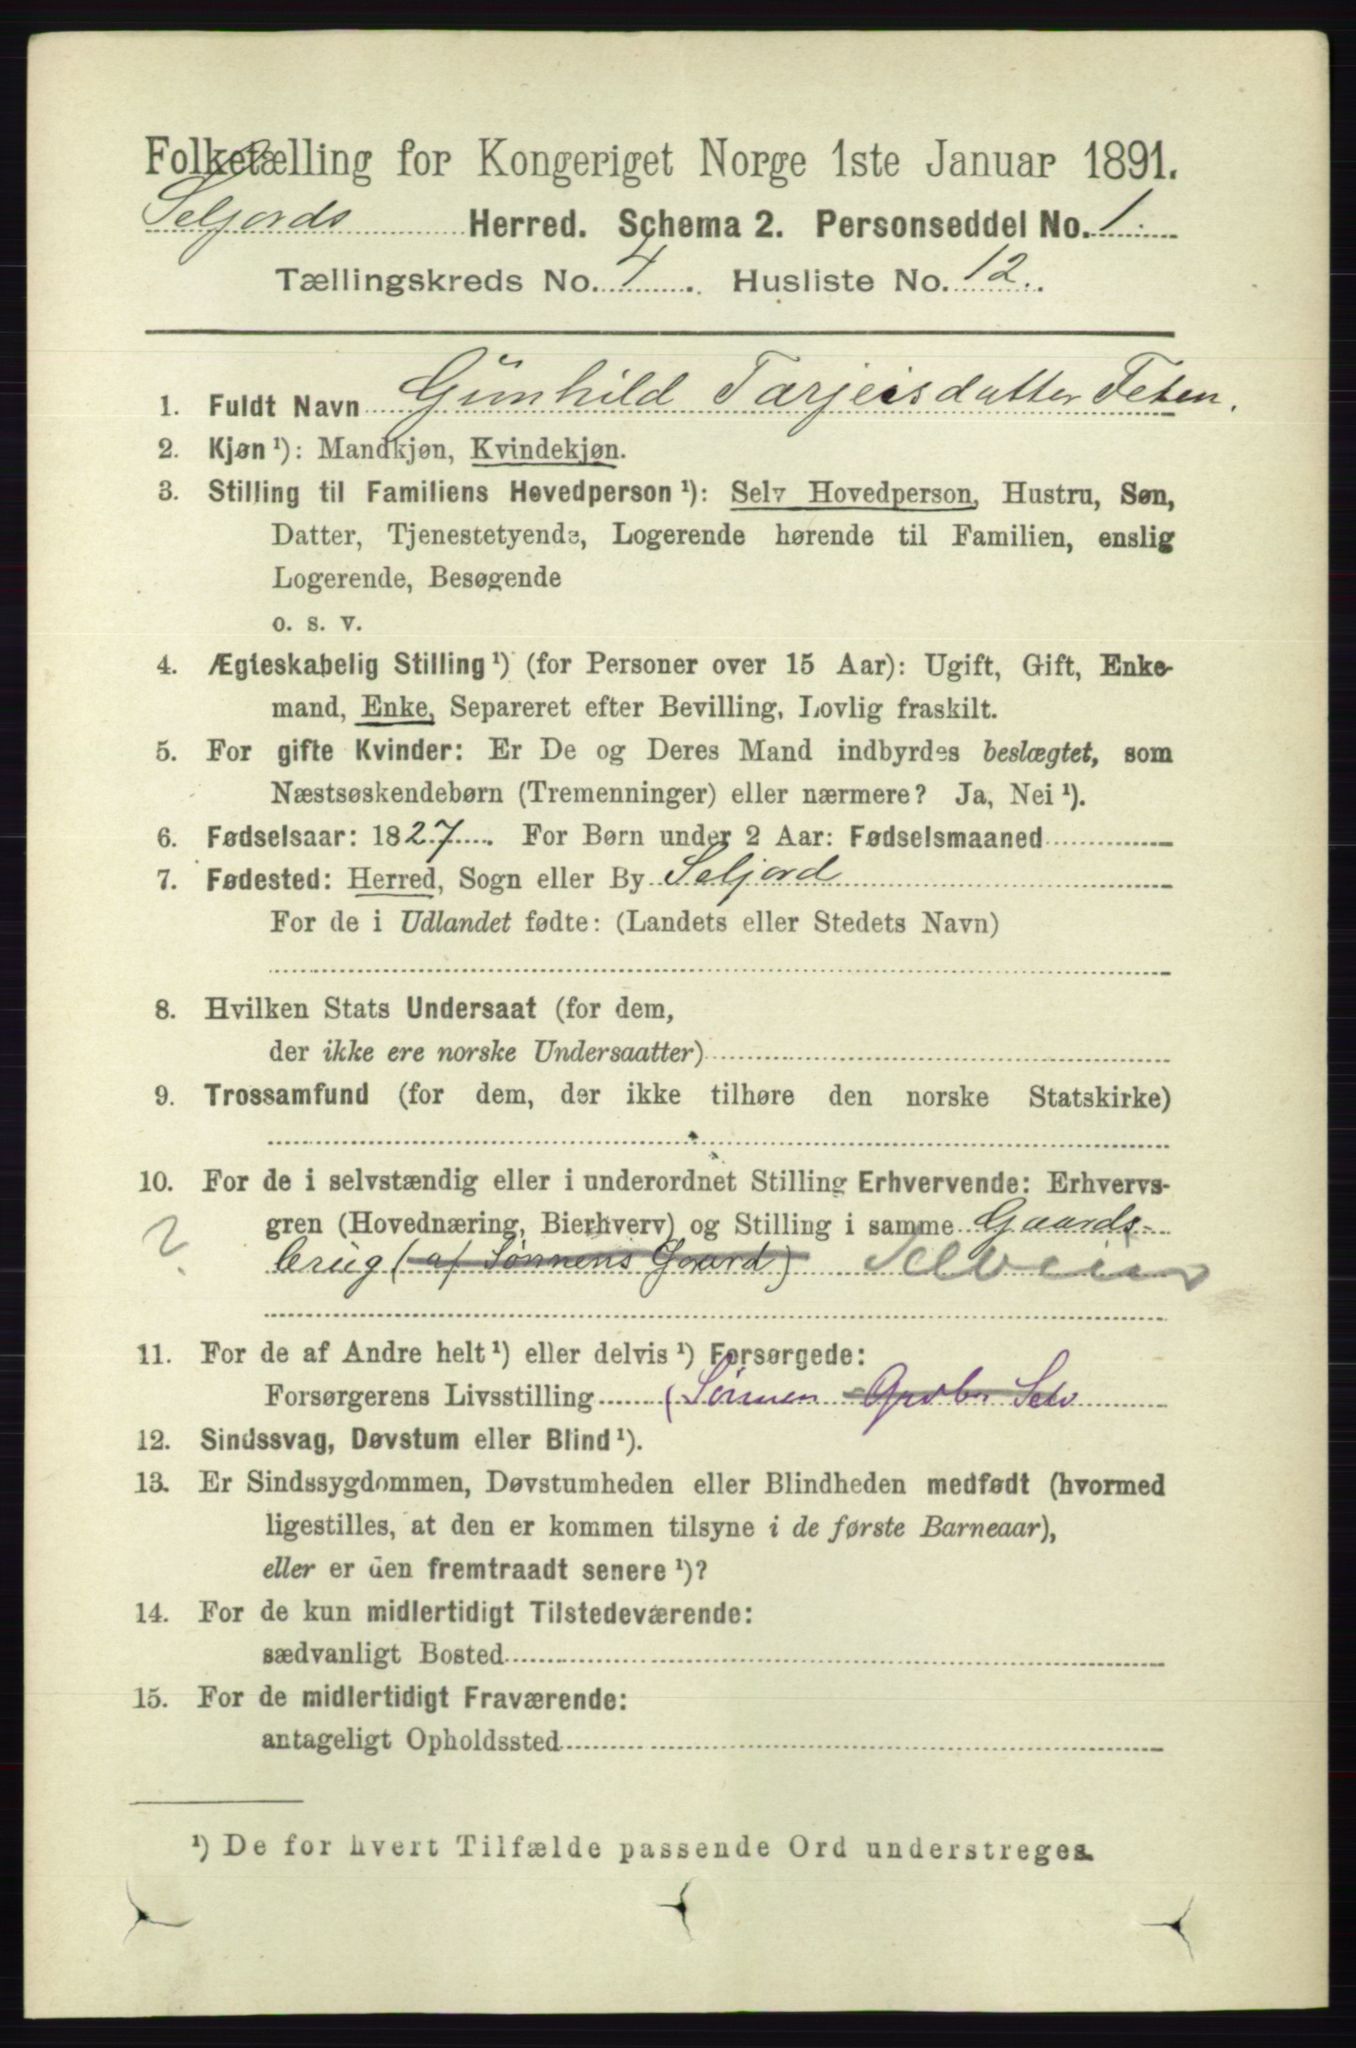 Folketælling for Kongeriget Norge 1ste Januar 1891.
Seljords Herred. Schema 2. Personseddel No. 1.
Tællingskreds No. 4. Husliste No. 12.
1. Fuldt Navn Gunhild Tarjeisdatter Teten.
2. Kjøn ¹): Mandkjøn, Kvindekjøn.
3. Stilling til Familiens Hovedperson ¹): Selv Hovedperson, Hustru, Søn,
Datter, Tjenestetyende, Logerende hørende til Familien, enslig
Logerende, Besøgende
o. s. v.
4. Ægteskabelig Stilling ¹) (for Personer over 15 Aar): Ugift, Gift, Enke-
mand, Enke, Separeret efter Bevilling, Lovlig fraskilt.
5. For gifte Kvinder: Er De og Deres Mand indbyrdes beslægtet, som
Næstsøskendebørn (Tremenninger) eller nærmere? Ja, Nei ¹).
6. Fødselsaar: 1827. For Børn under 2 Aar: Fødselsmaaned
7. Fødested: Herred, Sogn eller By Seljord
For de i Udlandet fødte: (Landets eller Stedets Navn)
8. Hvilken Stats Undersaat (for dem,
der ikke ere norske Undersaatter)
9. Trossamfund (for dem, der ikke tilhøre den norske Statskirke)
10. For de i selvstændig eller i underordnet Stilling Erhvervende: Erhvervs-
gren (Hovednæring, Bierhverv) og Stilling i samme Gaards-
? brug (af Sønnens Gaard) Selveier
11. For de af Andre helt ¹) eller delvis ¹) Forsørgede:
Forsørgerens Livsstilling (Sönnen Gaardbr Selv
12. Sindssvag, Døvstum eller Blind ¹).
13. Er Sindssygdommen, Døvstumheden eller Blindheden medfødt (hvormed
ligestilles, at den er kommen tilsyne i de første Barneaar),
eller er den fremtraadt senere ¹)?
14. For de kun midlertidigt Tilstedeværende:
sædvanligt Bosted
15. For de midlertidigt Fraværende:
antageligt Opholdssted
¹) De for hvert Tilfælde passende Ord understreges.